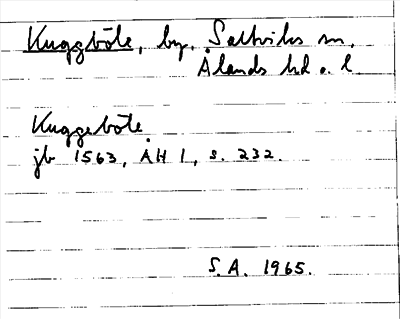 Kuggböle, by, Saltviks sn,
Ålands hd o. l.
Kuggeböle
jb 1563, ÅH 1, s. 232.
S.A. 1965.